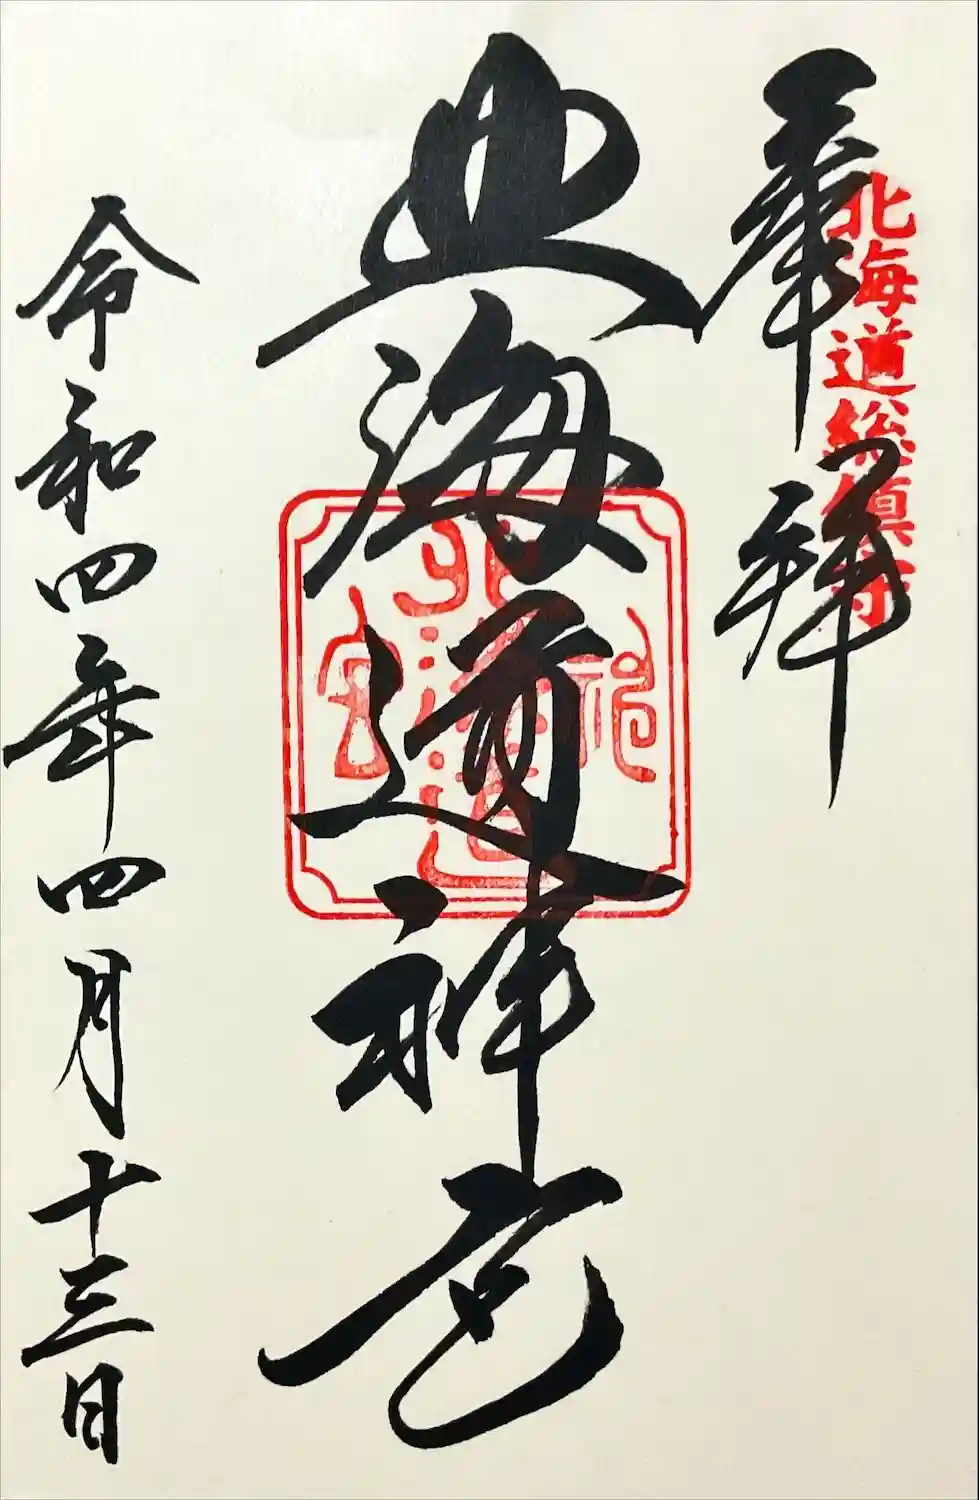 奉拝
北海道総鎮守
北海道神宮
北海道神宮
令和四年四月十三日